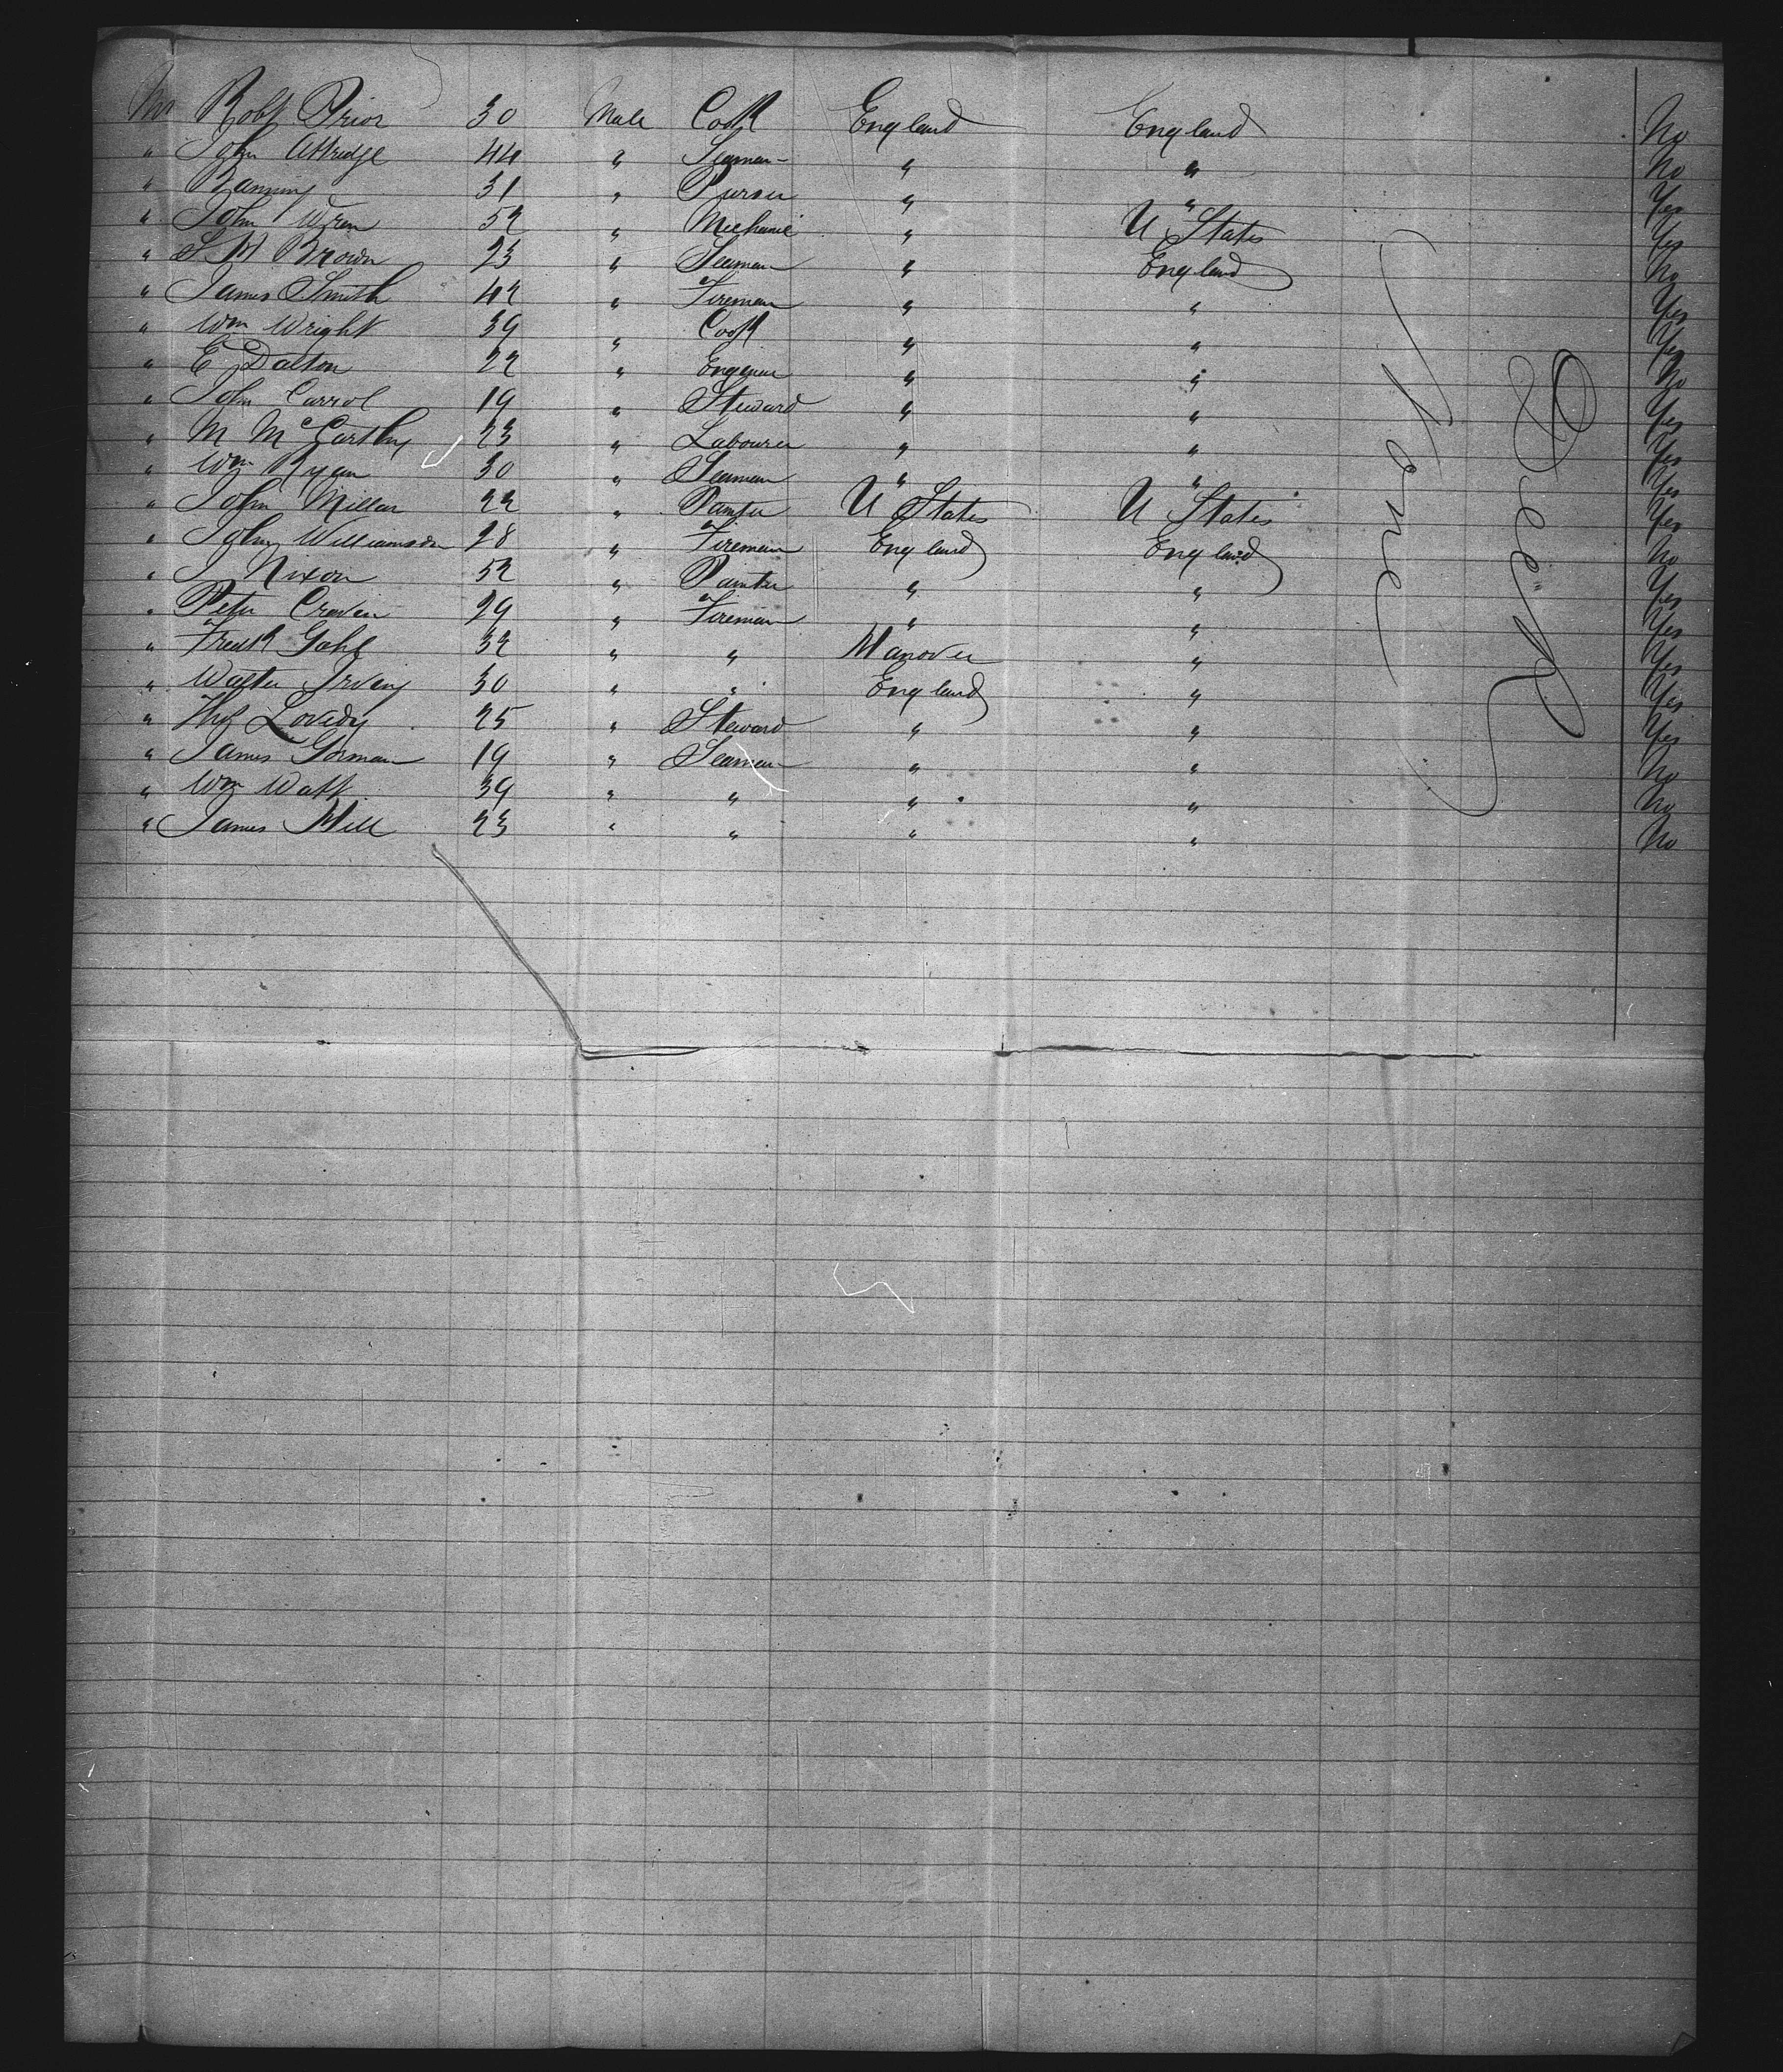 Mr Robt Prior 30 Male Cook England England No
" John Attridge 44 " Seaman " " No
" Banning 31 " Purser " " Yes
" John Wren 52 " Mechanic " U States Yes
" S H Brown 23 " Seaman " England No
" James Smith 42 " Fireman " " Yes
" Wm Wright 39 " Cook " " Yes
" E Dalton 22 " Engineer " " No
" John Carrol 19 " Steward " " Yes
" M McCarthy 23 " Labourer " " Yes
" Wm Ryan 30 " Seaman " " Yes
" John Millar 22 " Painter U States U States Yes
" John Williamson 28 " Fireman England England No
" J Nixon 52 " Painter " " Yes
" Peter Craven 29 " Fireman " " Yes
" Fredk Gahl 32 " " Hanover " Yes
" Walter Irving 30 " " England " Yes
" Thos Lovedy 25 " Steward " " Yes
" James Gorman 19 " Seaman " " No
" Wm Watt 39 " " " " No
" James Hill 23 " " " " No
None
Deck